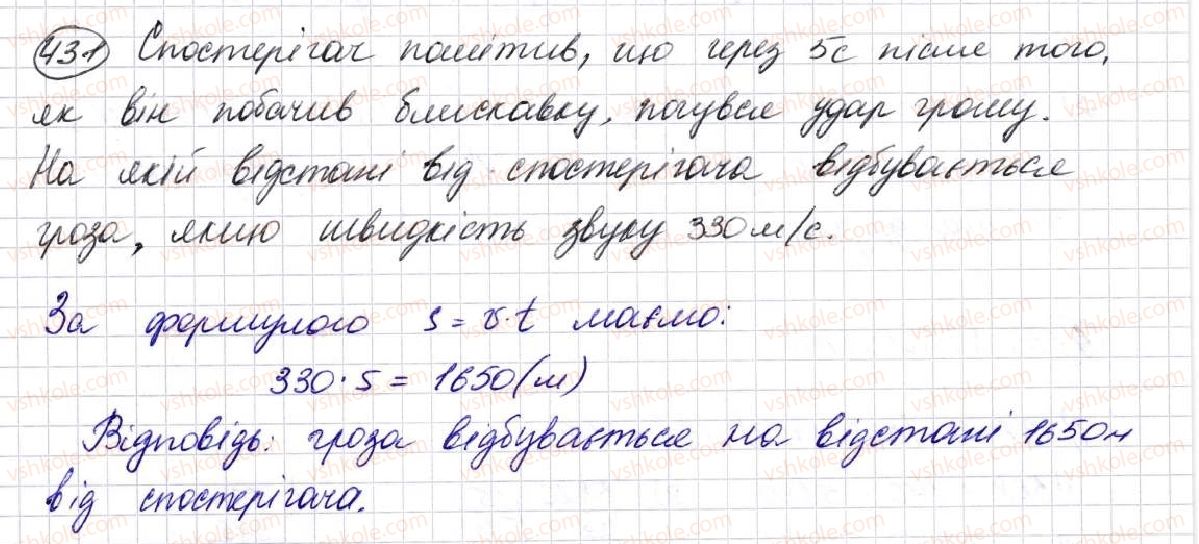 431 Спостерігач помітив, що через 5с після того,
як він побачив блискавку, почувся удар грому.
На якій відстані від спостерігача відбувається
гроза, якщо швидкість звуку 330 м/с.
За формулою s = v·t маємо:
330·5 = 1650 (м)
Відповідь: гроза відбувається на відстані 1650м
від спостерігача.